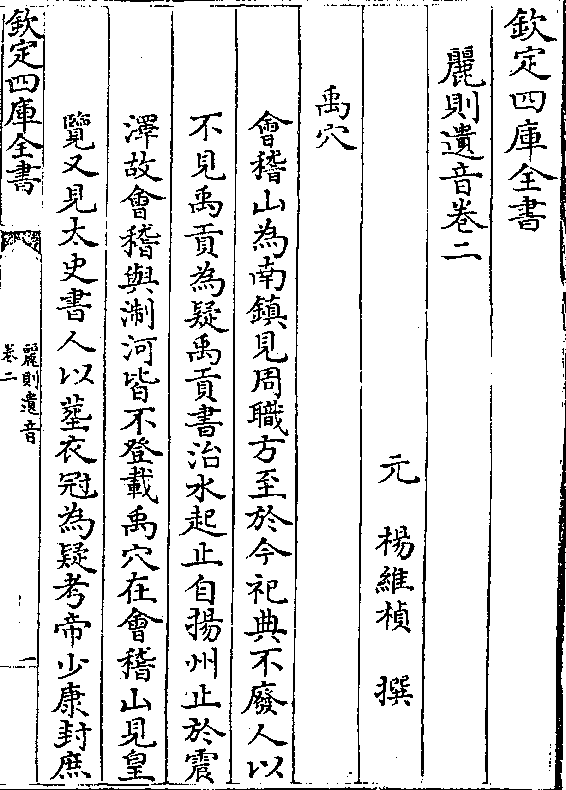 欽定四庫全書
麗則遺音卷二
元 楊維楨 撰
禹穴
會稽山為南鎮見周職方至於今祀典不廢人以
不見禹貢為疑禹貢書治水起止自揚州止於震
澤故會稽與淛河皆不登載禹穴在會稽山見皇
覽又見太史書人以葬衣冠為疑考帝少康封庶
欽定四庫全書
麗則遺音
卷二
一